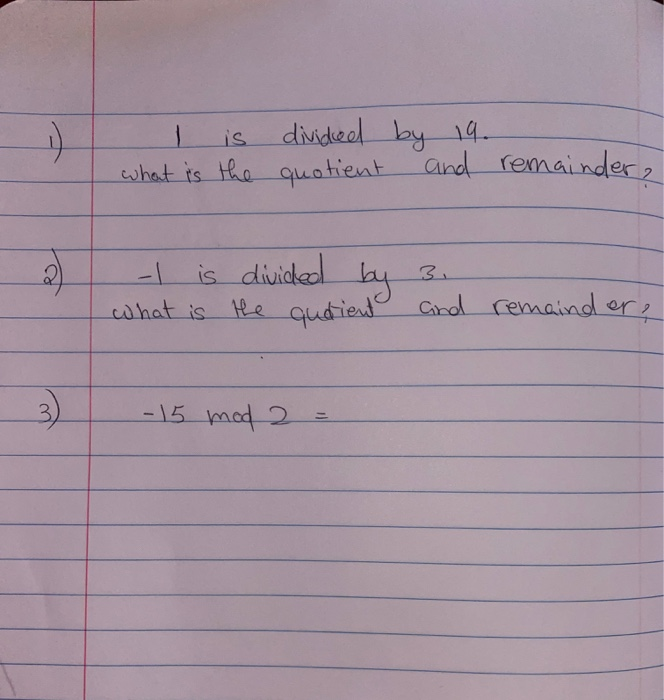 1) 1 is divided by 19.
what is the quotient and remainder?
2) -1 is divided by 3.
what is the qutient and remainder?
3) -15 mod 2 =